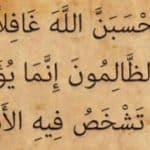 حْسَبَنَّ اللَّهَ غَافِلَا
لظَّالِمُونَ إِنَّمَا يُؤَ
تَشْخَصُ فِيهِ الْأَ